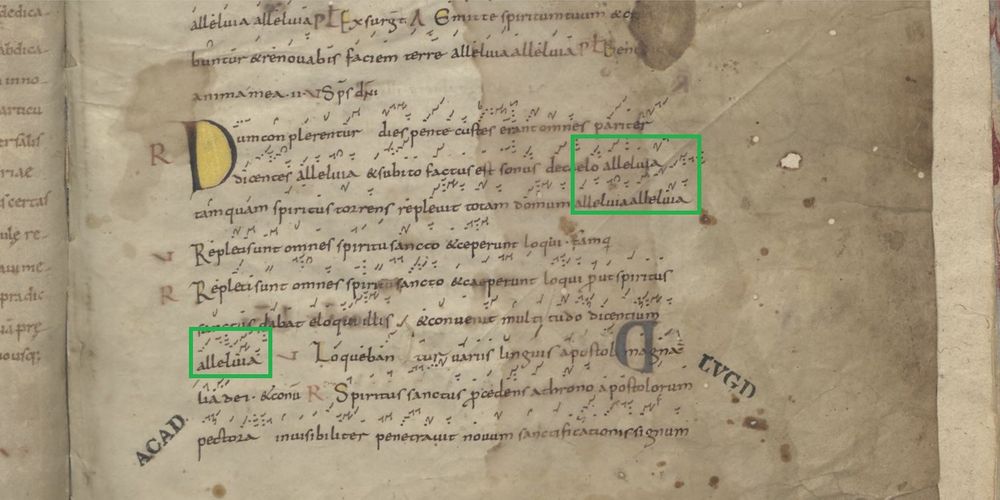 alleluia alleluia PL Exsurgt A Emitte spiritum tuum & c
buntur & renovabis faciem terre alleluia alleluia PL Bened
anima mea . v Sps dni
R Dum conplerentur dies pentecostes erant omnes pariter
dicentes alleluia & subito factus est sonus de caelo alleluia
tamquam spiritus torrens replevit totam domum alleluia alleluia
V Repleti sunt omnes spiritu sancto & ceperunt loqui . tamq
R Repleti sunt omnes spiritu sancto & caeperunt loqui prout spiritus
sanctus dabat eloqui illis & convenit multitudo dicentium
alleluia V Loquebantur variis linguis apostoli magna
lia dei . & conv R Spiritus sanctus pcedens a throno apostolorum
pectora invisibiliter penetravit novum sanctificationis signum
ACAD LVGD